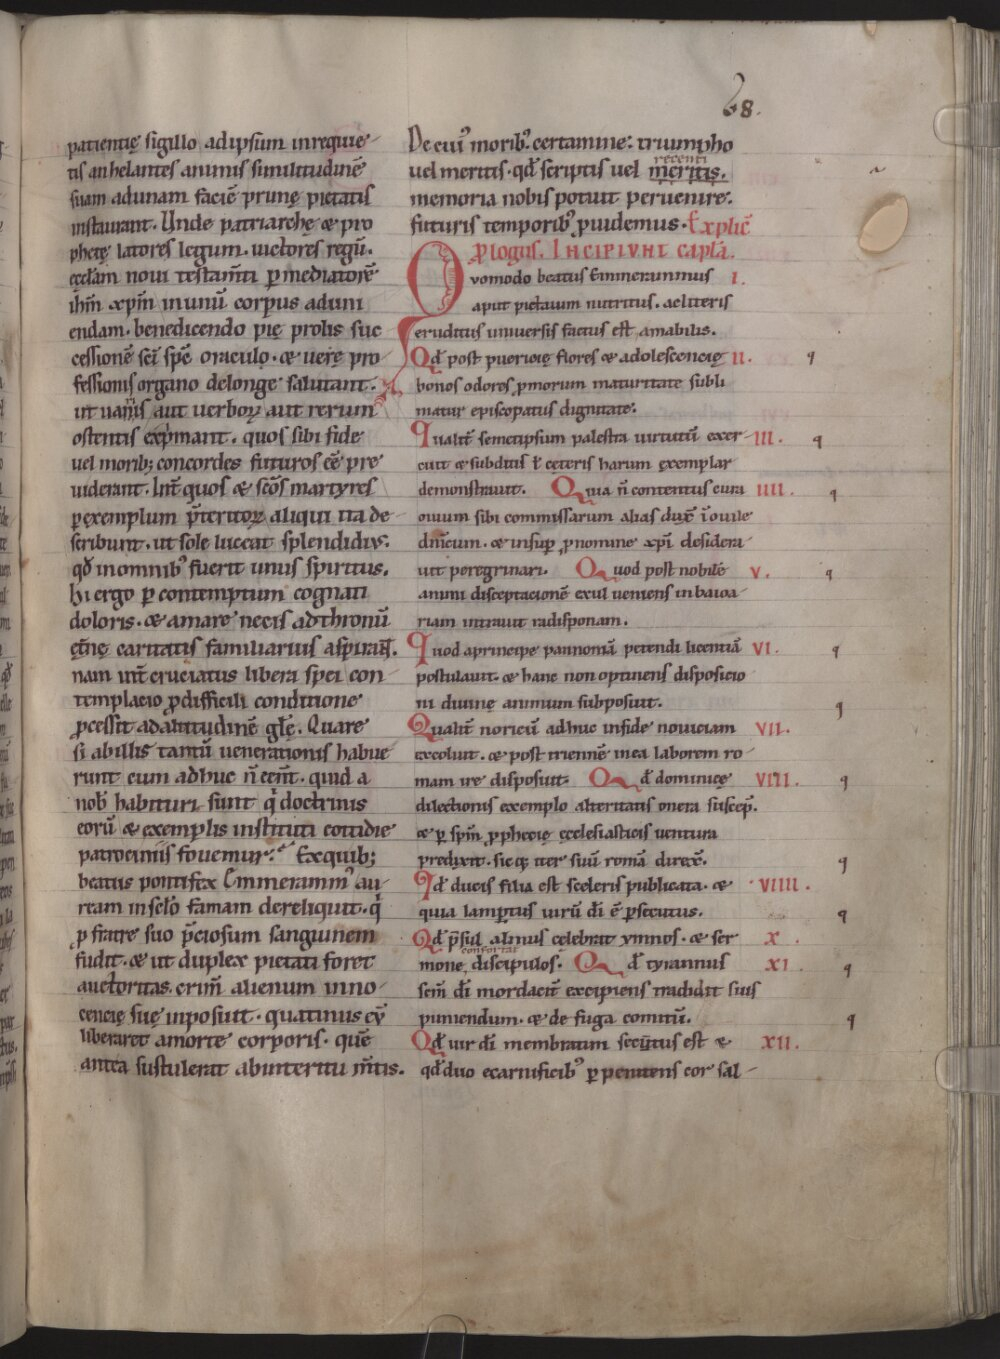 68.
patientię sigillo adipsum inrequie-
tis anhelantes animis similitudinē
suam adunam faciē prunę pietatis
instaurant. Unde patriarchę & pro
phetę latores legum. uictores regū.
ęcclām noui testam̄ti p mediatorē
ihm̄ xpm̄ inunū corpus aduni
endam. benedicendo pię prolis suc
cessionē sc̄i spē oraculo. & uerę pro
fessionis organo delonge salutant.
ut uariis aut uerboꝝ aut rerum
ostentis exp̄mant. quos sibi fide
uel morib; concordes futuros ēē pre
uiderant. Int̄ quos & sc̄os martyres
ꝑexemplum p̄teritoꝝ aliqui ita de-
scribunt. ut sole luceat splendidiꝰ.
qd̄ inomnibꝰ fuerit unus spiritus.
hi ergo ꝑ contemptum cognati
doloris. & amare necis adthronū
ęt̄nę caritatis familiarius aspirar̄.
nam int̄ cruciatus libera spei con-
templacio ꝓdifficili conditione
ꝓcessit adaltitudinē gl̄ę. Quare
si abillis tantū uenerationis habue-
runt cum adhuc n̄ ēent̄. quid a
nob̄ habituri sunt q̄ doctrinis
eorū & exemplis instituti cottidie
patrociniis fouemur. Ex quib;
beatus pontifex Emmerammꝰ au-
ream inselo famam dereliquit. q̄
ꝓ fratre suo p̄ciosum sanguinem
fudit. & ut duplex pietati foret
auctoritas. crim̄ alienum inno-
cencię suę inposuit. quatinus eū
liberaret amorte corporis. quē
antea sustulerat abinteritu m̄tis.
De cuiꝰ moribꝰ. certamine. triumpho
uel meritis. qd̄ scriptis uel recenti meritis.
memoria nobis potuit peruenire.
futuris temporibꝰ ꝓuidemus. Explic̄
ꝓlogus. Incipiunt capl̄a.
Quomodo beatus Emmerammus I.
aput pictauum nutritus. ac literis
eruditus uniuersis factus est amabilis.
Qd̄ post puericię flores & adolescencię II.
bonos odores ꝓmorum maturitate subli
matur episcopatus dignitate.
Qualit̄ semetipsum palestra uirtutū exer- III.
cuit & subditis ł ceteris harum exemplar
demonstrauit. Quia n̄ contentus cura IIII.
ouium sibi commissarum alias dux̄ īouile
dn̄icum. & insuꝑ ꝓ nomine xpī desidera-
uit peregrinari. Quod post nobilē V.
animi disceptacionē exul ueniens inbaioa-
riam intrauit radisponam.
Quod aprincipe pannoniā petendi licentiā VI.
postulauit. & hanc non optinens disposicio
ni diuinę animum subposuit.
Qualit̄ noricū adhuc infide nouiciam VII.
excoluit. & post triennē inea laborem ro-
mam ire disposuit. Qd̄ dominicę VIII.
dilectionis exemplo alteritatis onera suscep̄.
& ꝑ spm̄ ꝓphecię ęcclesiasticis uentura
predixit. sicq; iter suū romā direx̄.
Qd̄ ducis filia est sceleris publicata. & VIIII.
quia lamptus uirū dī ē ꝑsecutus.
Qd̄ p̄sul almus celebrat ymnos. & ser X.
mone confortat discipulos. Qd̄ tyrannus XI.
sc̄m dī mordacit̄ excipiens tradidit suis
puniendum. & de fuga comitū.
Qd̄ uir dī membratim secutus est & XII.
qd̄ duo ecarnificibꝰ ꝑ penitens cor sal-